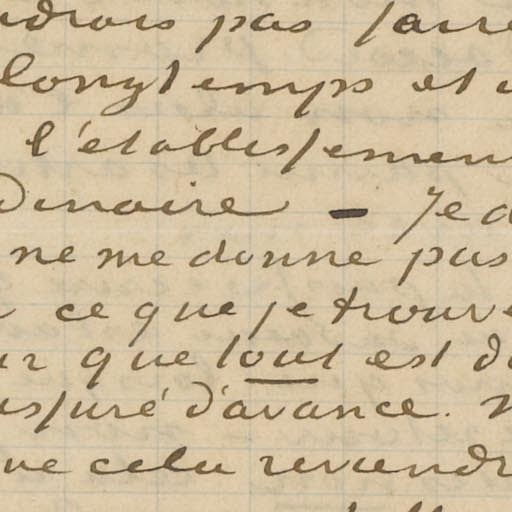 drais pas
longtemps et
l'établissemen
dinaire — Je d
ne me donne pas
ce que je trouve
que tout est d
d'avance.
cela reviendr